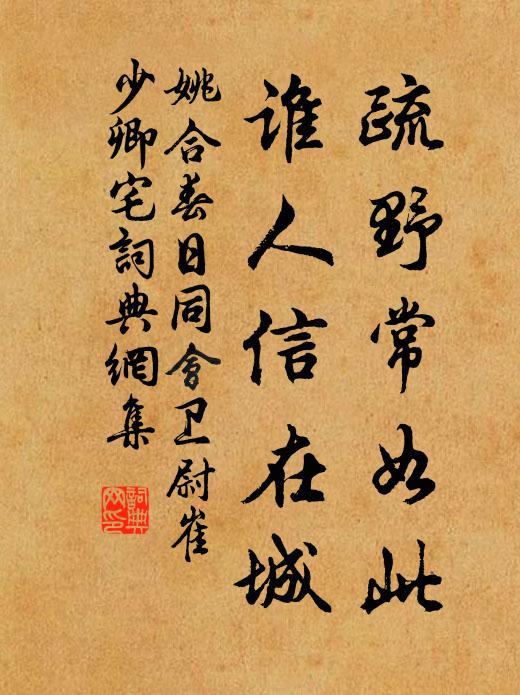 疏野常如此
谁人信在城
姚合春日同會卫尉崔
少卿宅詞典網集
詞典
网印